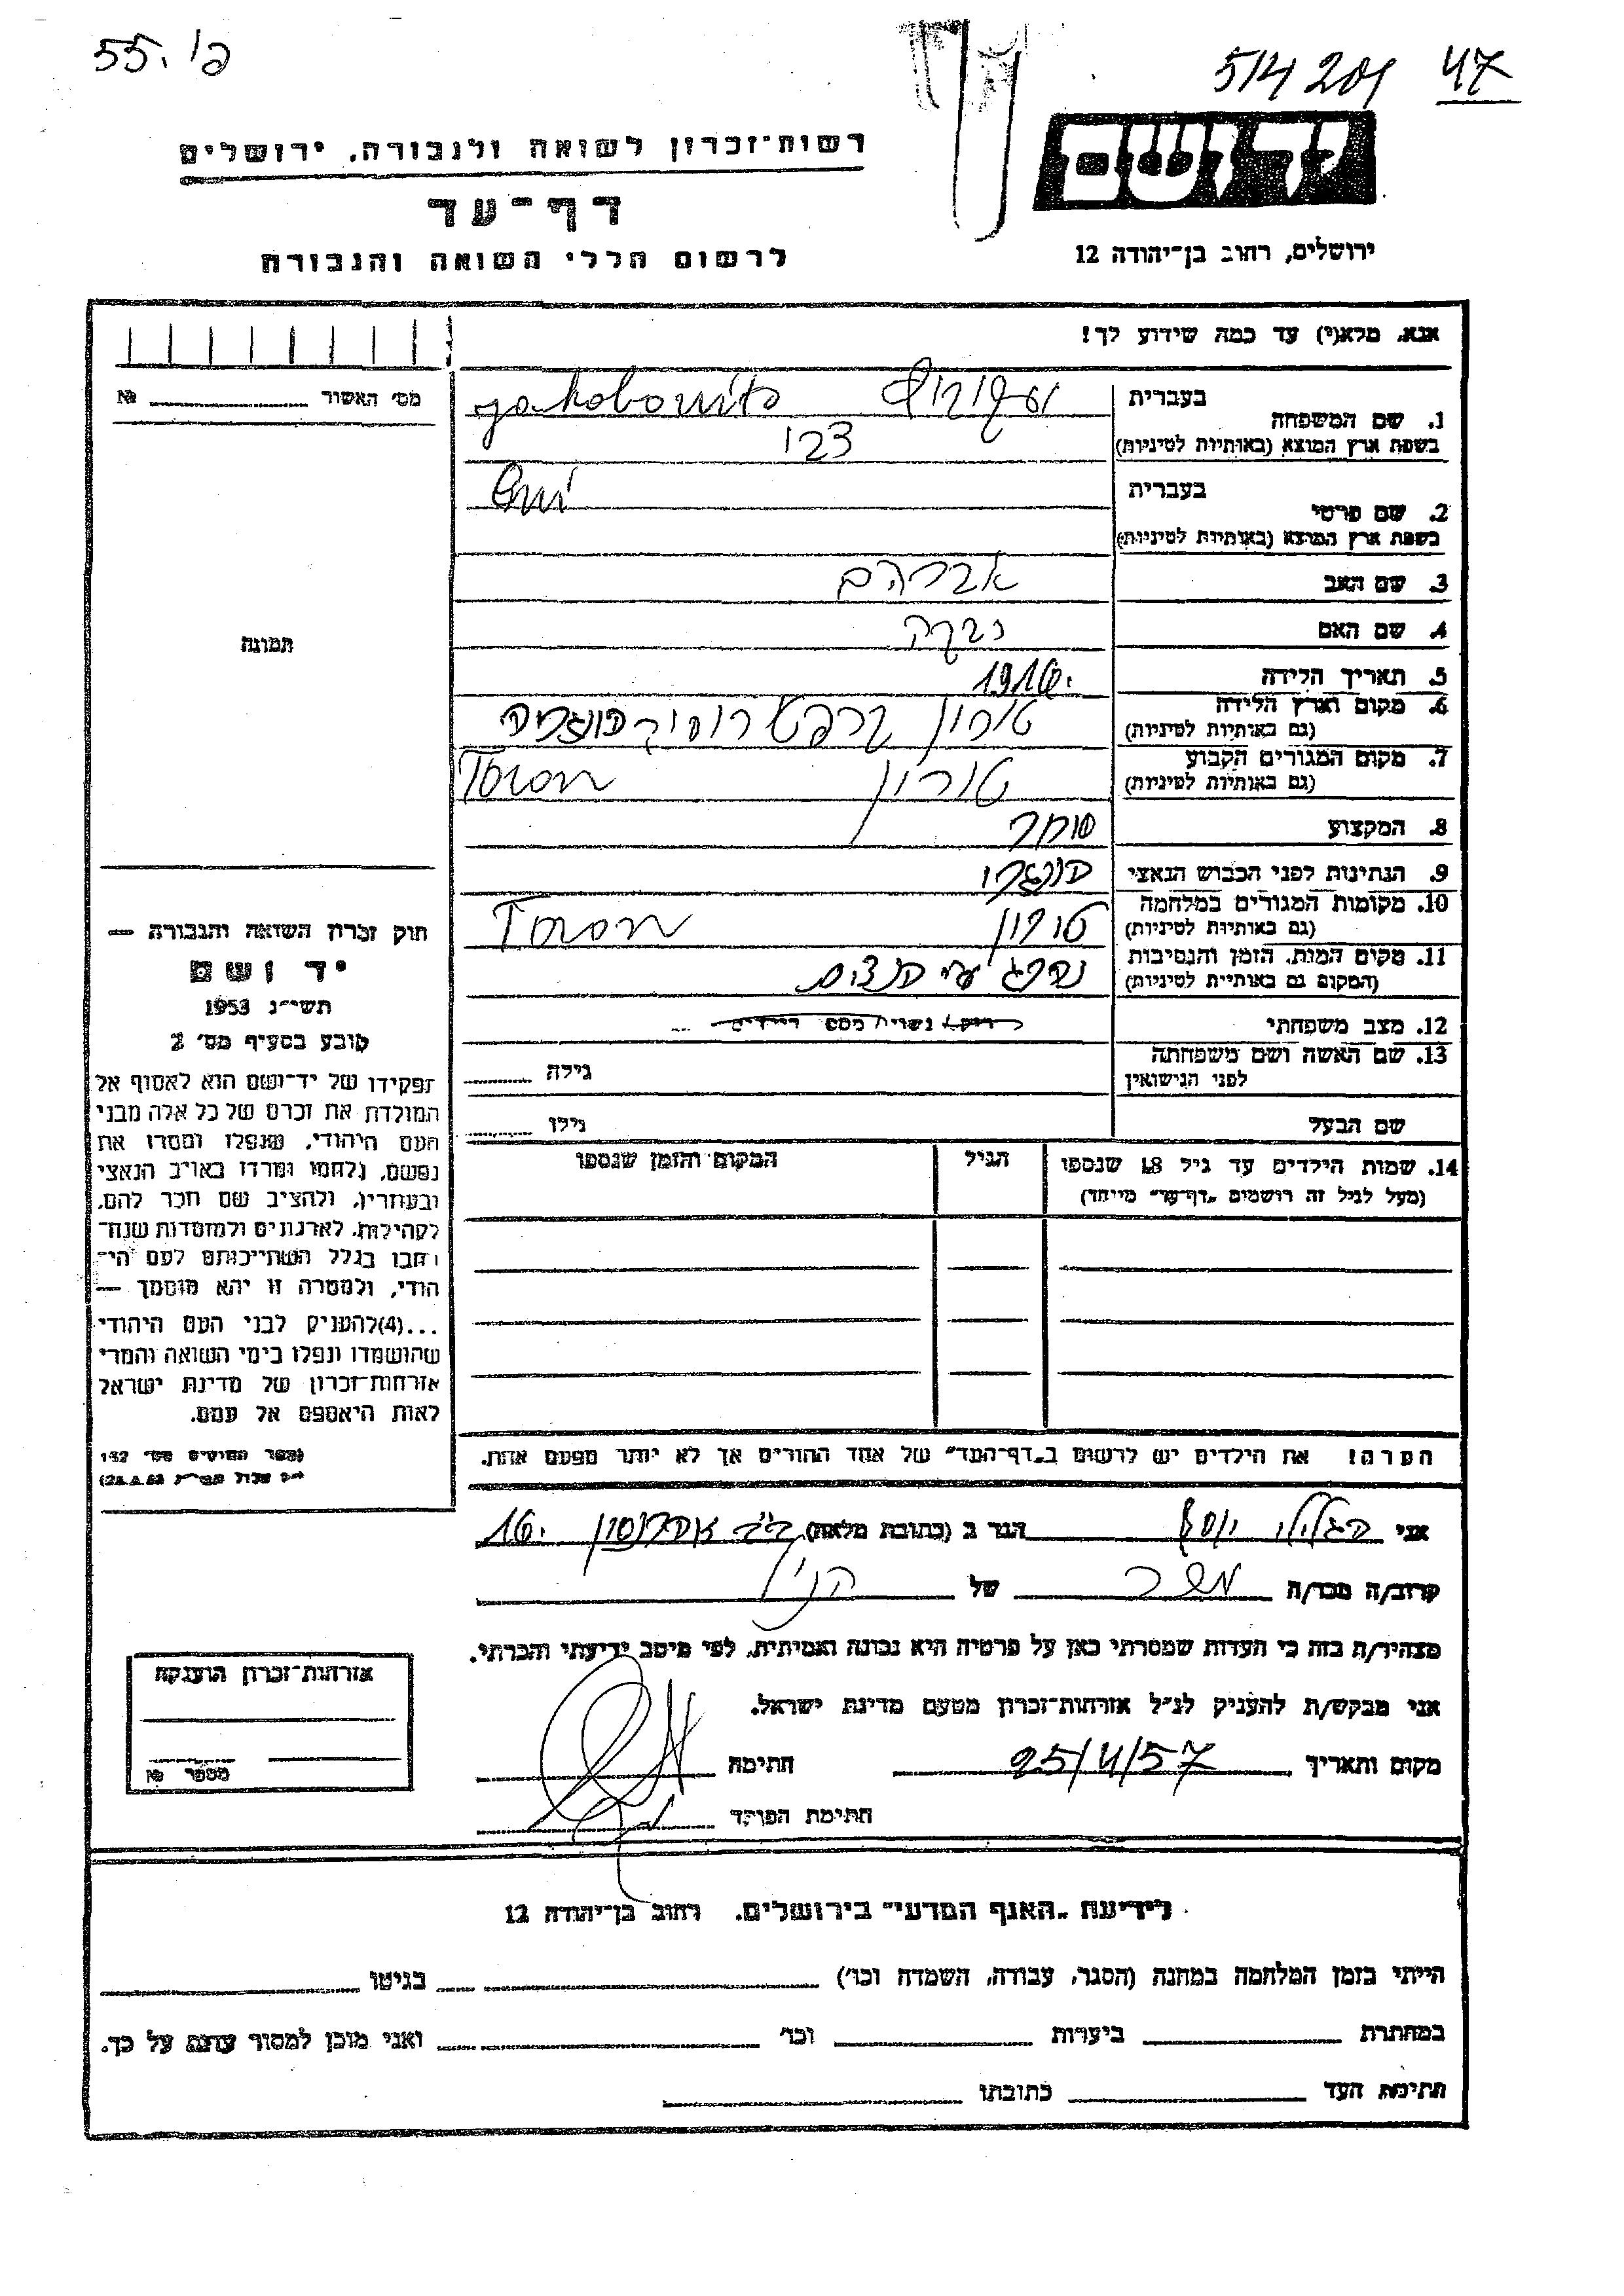 55. פו
514 201 47
ידושם
רשות־זכרון לשואה ולגבורה, ירושלים
דף־עד
לרשום חללי השואה והגבורה
ירושלים, רחוב בן־יהודה 12
אנא, מלא(י) עד כמה שידוע לך!
מס׳ האשור № 
1. שם המשפחה
בעברית
jakobovits
בשפת ארץ המוצא (באותיות לטיניות)
2. שם פרטי
בעברית
בשפת ארץ המוצא (באותיות לטיניות)
3. שם האב אברהם
4. שם האם רבקה
5. תאריך הלידה 1910.
6. מקום וארץ הלידה
(גם באותיות לטיניות)
7. מקום המגורים הקבוע טורון Toron
(גם באותיות לטיניות)
8. המקצוע סוחר
9. הנתינות לפני הכבוש הנאצי הונגרי
10. מקומות המגורים במלחמה טורון Toron
(גם באותיות לטיניות)
11. מקום המות, הזמן והנסיבות נהרג ע״י הנצים
(המקום גם באותיות לטיניות)
12. מצב משפחתי רוק/ נשוי/ מספר הילדים
13. שם האשה ושם משפחתה
לפני הנישואין
גילה
שם הבעל גילו
14. שמות הילדים עד גיל 18 שנספו הגיל המקום והזמן שנספו
(מעל לגיל זה רושמים „דף־עד״ מיוחד)
הערה! את הילדים יש לרשום ב„דף־העד״ של אחד ההורים אך לא יותר מפעם אחת.
תמונה
חוק זכרון השואה והגבורה —
יד ושם
תשי״ג 1953
קובע בסעיף מס׳ 2
תפקידו של יד־ושם הוא לאסוף אל
המולדת את זכרם של כל אלה מבני
העם היהודי, שנפלו ומסרו את
נפשם, נלחמו ומרדו באויב הנאצי
ובעוזריו, ולהציב שם וזכר להם,
לקהילות, לארגונים ולמוסדות שנח־
רבו בגלל השתייכותם לעם הי־
הודי, ולמטרה זו יהא מוסמך —
...(4)להעניק לבני העם היהודי
שהושמדו ונפלו בימי השואה והמרי
אזרחות־זכרון של מדינת ישראל
לאות היאספם אל עמם.
(ספר החוקים מס׳ 132
אני הגלילי יוסף הגר ב (כתובת מלאה)
קרוב/ה מכר/ה מכר של הנ״ל
מצהיר/ה בזה כי העדות שמסרתי כאן על פרטיה היא נכונה ואמיתית, לפי מיטב ידיעתי והכרתי.
אני מבקש/ת להעניק לנ״ל אזרחות־זכרון מטעם מדינת ישראל.
מקום ותאריך 25/4/57 חתימה
חתימת הפוקד
אזרחות־זכרון הוענקה
לידיעת „האגף המדעי״ בירושלים, רחוב בן־יהודה 12
הייתי בזמן המלחמה במחנה (הסגר, עבודה, השמדה וכו׳) בגיטו
במחתרת ביערות וכו׳ ואני מוכן למסור עדות על כך.
חתימת העד כתובתו